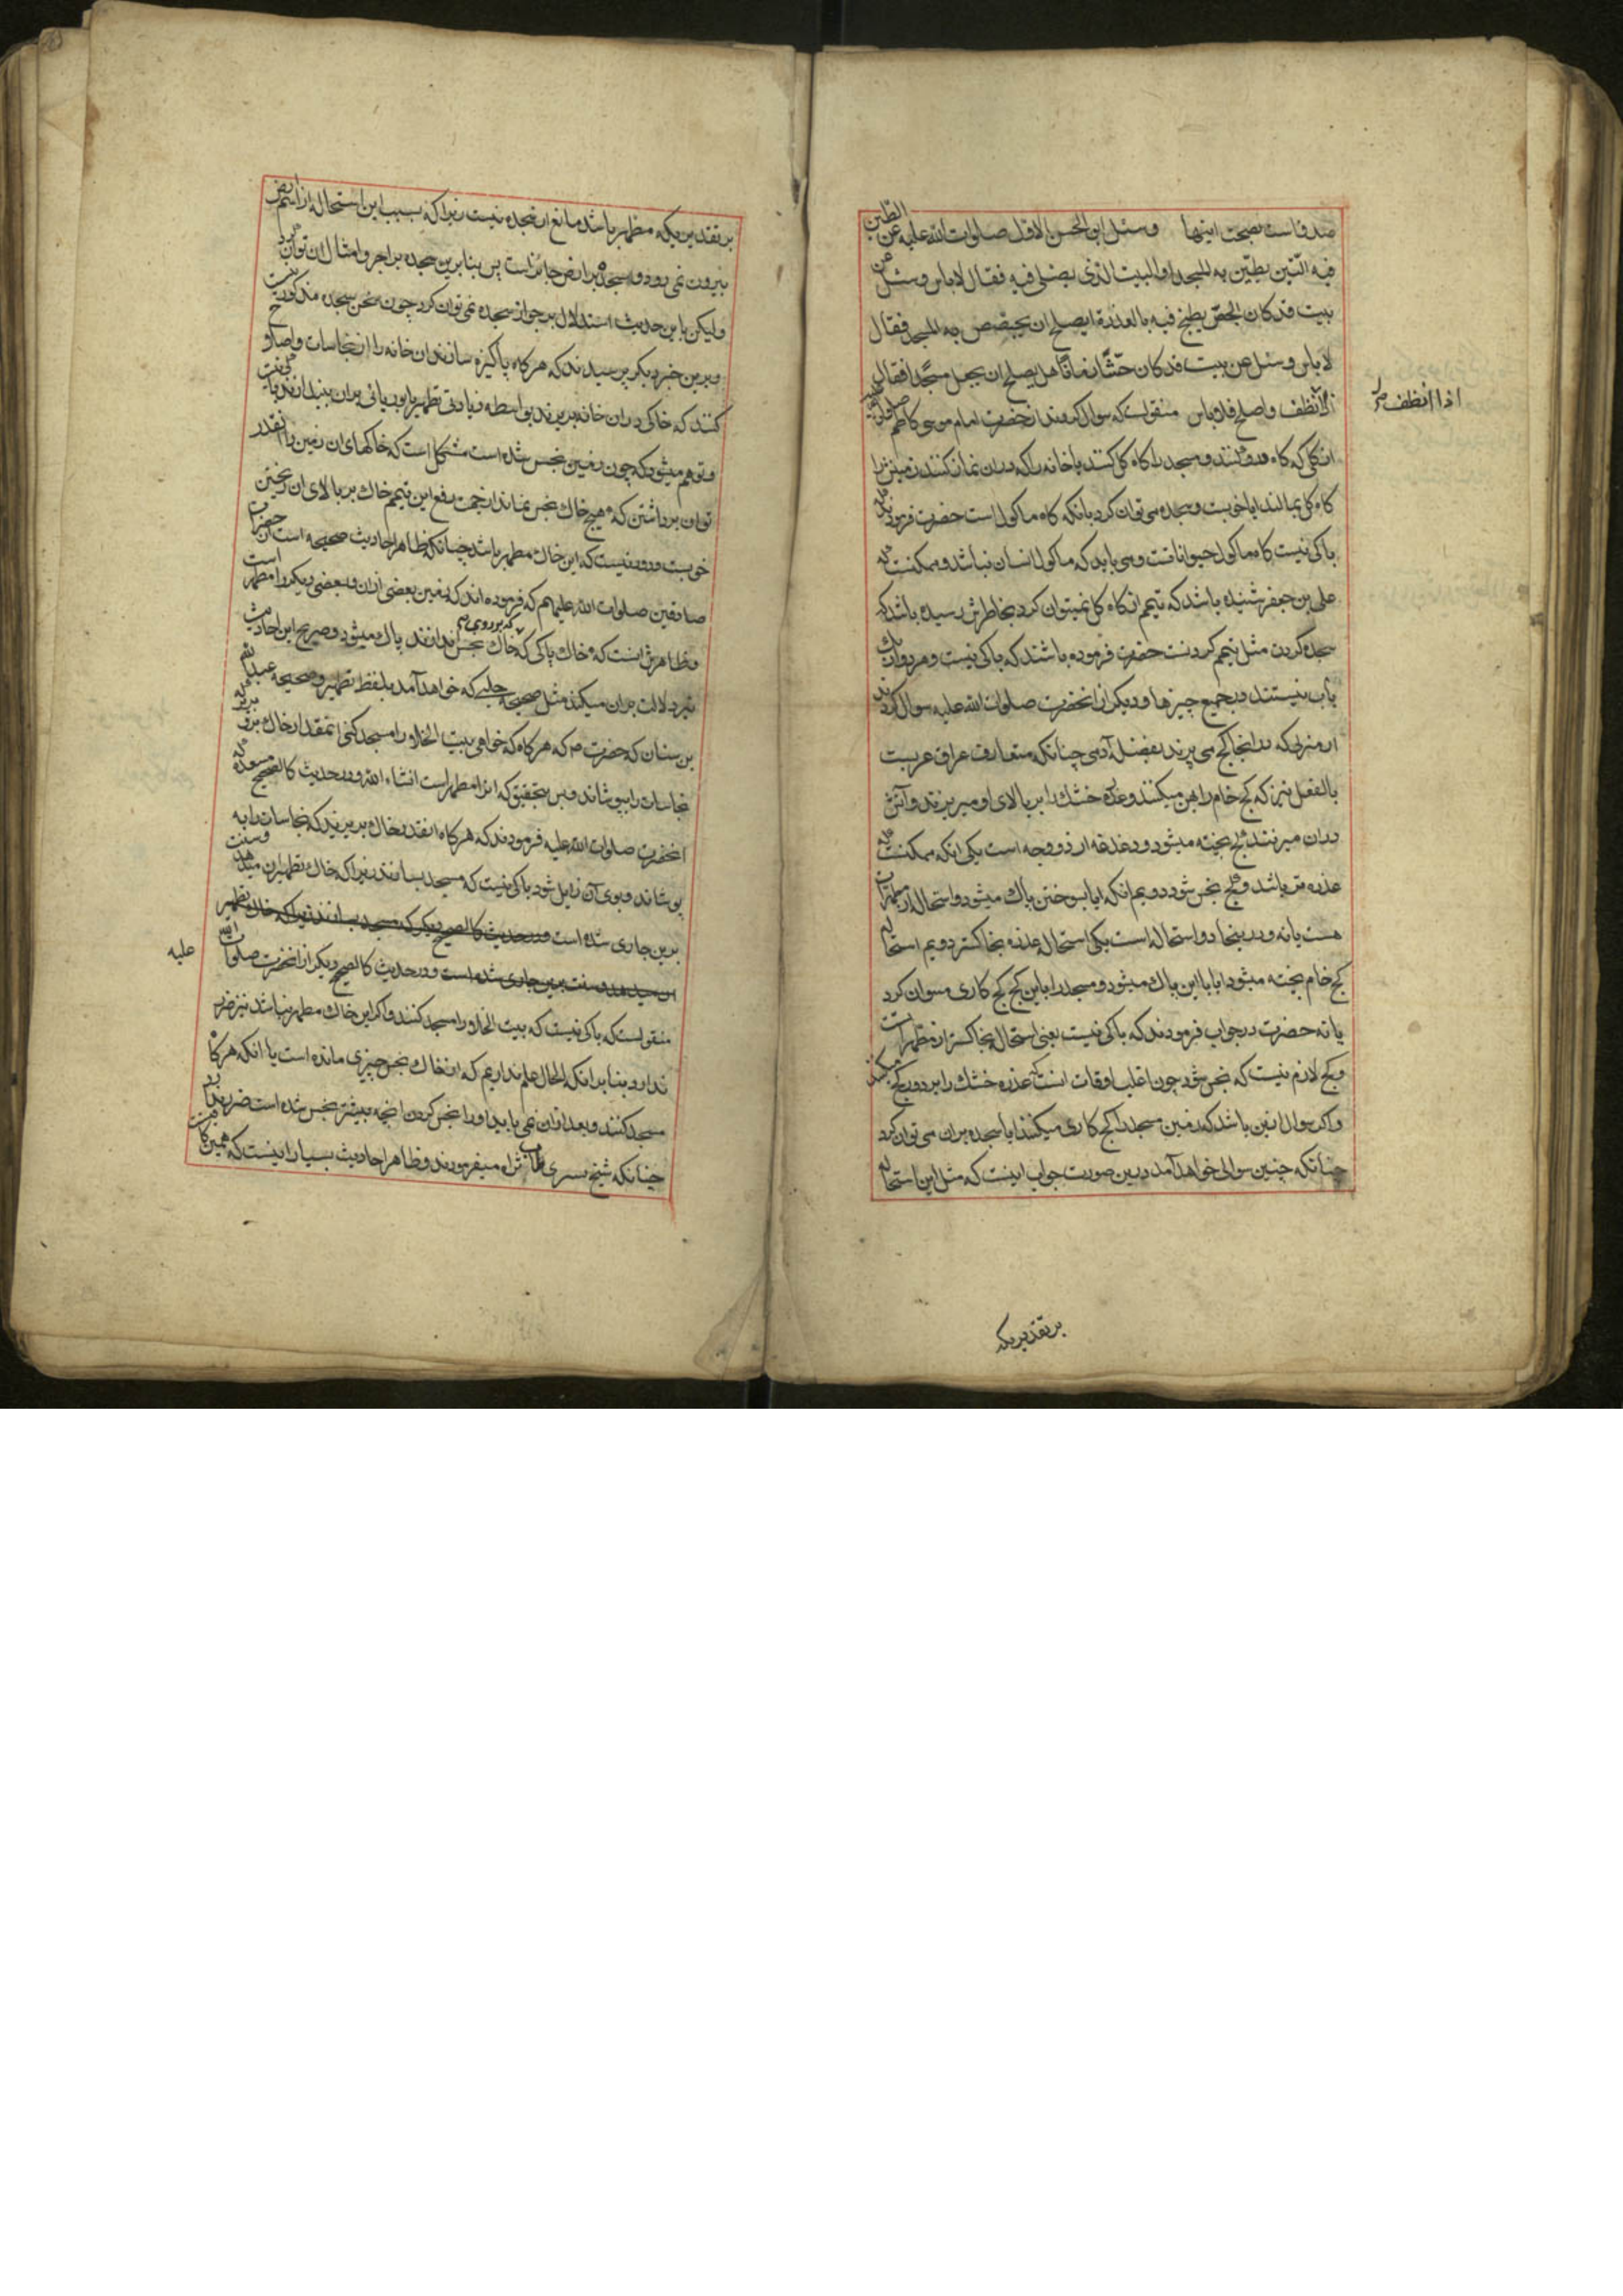 صدوقست بصحت اینها وسئل ابو الحسن الاول صلوات الله علیه عن الطین
فیه التبن یطین به المسجد او البیت الذی یصلی فیه فقال لا باس وسئل عن
بیت قد کان الجص یطبخ فیه بالعذرة ایصلح ان یجصص به المسجد فقال
لا باس وسئل عن بیت قد کان حشا زمانا هل یصلح ان یجعل مسجدا فقال
اذا نظف واصلح فلا باس منقولست که سوال کردند از حضرت امام موسی کاظم صلوات الله علیه
اذا انظف
از کلی که کاه درو کنند و مسجد را کاه کل کنند یا خانه را که دران نماز کنند زمینش را
کاه کل بمالند ایا خوبست و سجده می توان کرد بانکه کاه ماکول است حضرت فرمودند که
باکی نیست کاه ماکول حیواناتست و می باید که ماکول انسان نباشد و ممکنست که
علی بن جعفر شنیده باشد که تیمم از کاه کل نمیتوان کرد بخاطرش رسیده باشد که
سجده کردن مثل تیمم کردنست حضرت فرموده باشند که باکی نیست و هر دو از یک
باب نیستند در جمیع چیزها و دیکر از انحضرت صلوات الله علیه سوال کردند
از منزلی که در انجا کج می پزند بفضله آدمی چنانکه متعارف عراق عربست
بالفعل نیز که کج خام را پهن میکنند و عذره خشک را بر بالای او میریزند و آتش
دران میزنند کج پخته میشود و دغدغه از دو وجه است یکی انکه ممکنست که
عذره تر باشد و کج نجس شود دویم انکه ایا بسوختن پاک میشود و استحاله از مطهرات
هست یا نه و در ینجا دو استحاله است یکی استحاله عذره بخاکستر دویم استحاله
کج خام پخته میشود ایا با این پاک میشود و مسجد را با این کج کج کاری میتوان کرد
یا نه حضرت در جواب فرمودند که باکی نیست یعنی استحاله بخاکستر از مطهرات است
و کج لازم نیست که نجس شود چون اغلب اوقات انست که عذره خشک را بر دور کج میکنند
و اکر سوال ازین باشد که زمین مسجد را کج کاری میکنند ایا سجده بران می توان کرد
چنانکه چنین سوالی خواهد آمد درین صورت جواب اینست که مثل این استحاله
بر تقدیریکه
بر تقدیریکه مطهر باشد مانع از سجده نیست زیرا که بسبب این استحاله از اسم ارض
بیرون نمی رود و سجده بر ارض جائز است پس بنابرین سجده بر اجر و امثال ان توان کرد
ولیکن باین حدیث استدلال بر جواز سجده نمی توان کرد چون سخن سجده مذکور نیست
و برین خبر دیکر پرسیدند که هرکاه پاکیزه سازند ان خانه را از نجاسات و اصلاح
کنند که خاکی در ان خانه بریزند بواسطه زیادتی تطهیر یا بوریائی بران بیندازند باکی نیست
و توهم میشود که چون زمین نجس شده است مشکل است که خاکهای ان زمین را انقدر
توان برداشتن که هیچ خاک نجس نماند از جهت رفع این تیمم خاک بر بالای ان ریختن
خوبست و دور نیست که این خاک مطهر باشد چنانکه ظاهر احادیث صحیحه است از حضرات
صادقین صلوات الله علیهم که فرموده اند که زمین بعضی ازان بعضی دیکر را مطهر است
و ظاهرش انست که خاک پاکی که بر روی خاک نجس اندازند پاک میشود و صریح این احادیث
نیز دلالت بران میکند مثل صحیحه حلبی که خواهد آمد بلفظ تطهیر و صحیحه عبدالله
بن سنان که حضرت م که هرکاه که خواهی بیت الخلا را مسجد کنی انمقدار خاک برو بریز که
نجاسات را بپوشاند و پس بتحقیق که انرا مطهر است انشاء الله و در حدیث کالصحیح مسعده که
انحضرت صلوات الله علیه فرمودند که هرکاه انقدر خاک بریزند که نجاسات را به
پوشاند و بوی آن زایل شود باکی نیست که مسجد بسازند زیرا که خاک تطهیر ان میدهد و سنت
برین جاری شده است و در حدیث کالصحیح دیکر که مسجد بسازند زیرا که خاک تطهیر
ان میدهد و سنت برین جاری شده است و در حدیث کالصحیح دیکر از انحضرت صلوات الله
علیه
منقولست که باکی نیست که بیت الخلا را مسجد کنند و اکر این خاک مطهر نباشد نیز ضرر
ندارد بنابر انکه الحال علم نداریم که از خاک نجس چیزی مانده است یا انکه هرکاه
مسجد کنند و بعد ازان نمی باید او را نجس کردن انچه پیشتر نجس شده است ضرر ندارد
چنانکه شیخ تستری طاب ثراه میفرمودند و ظاهر احادیث بسیار اینست که همین کافیست